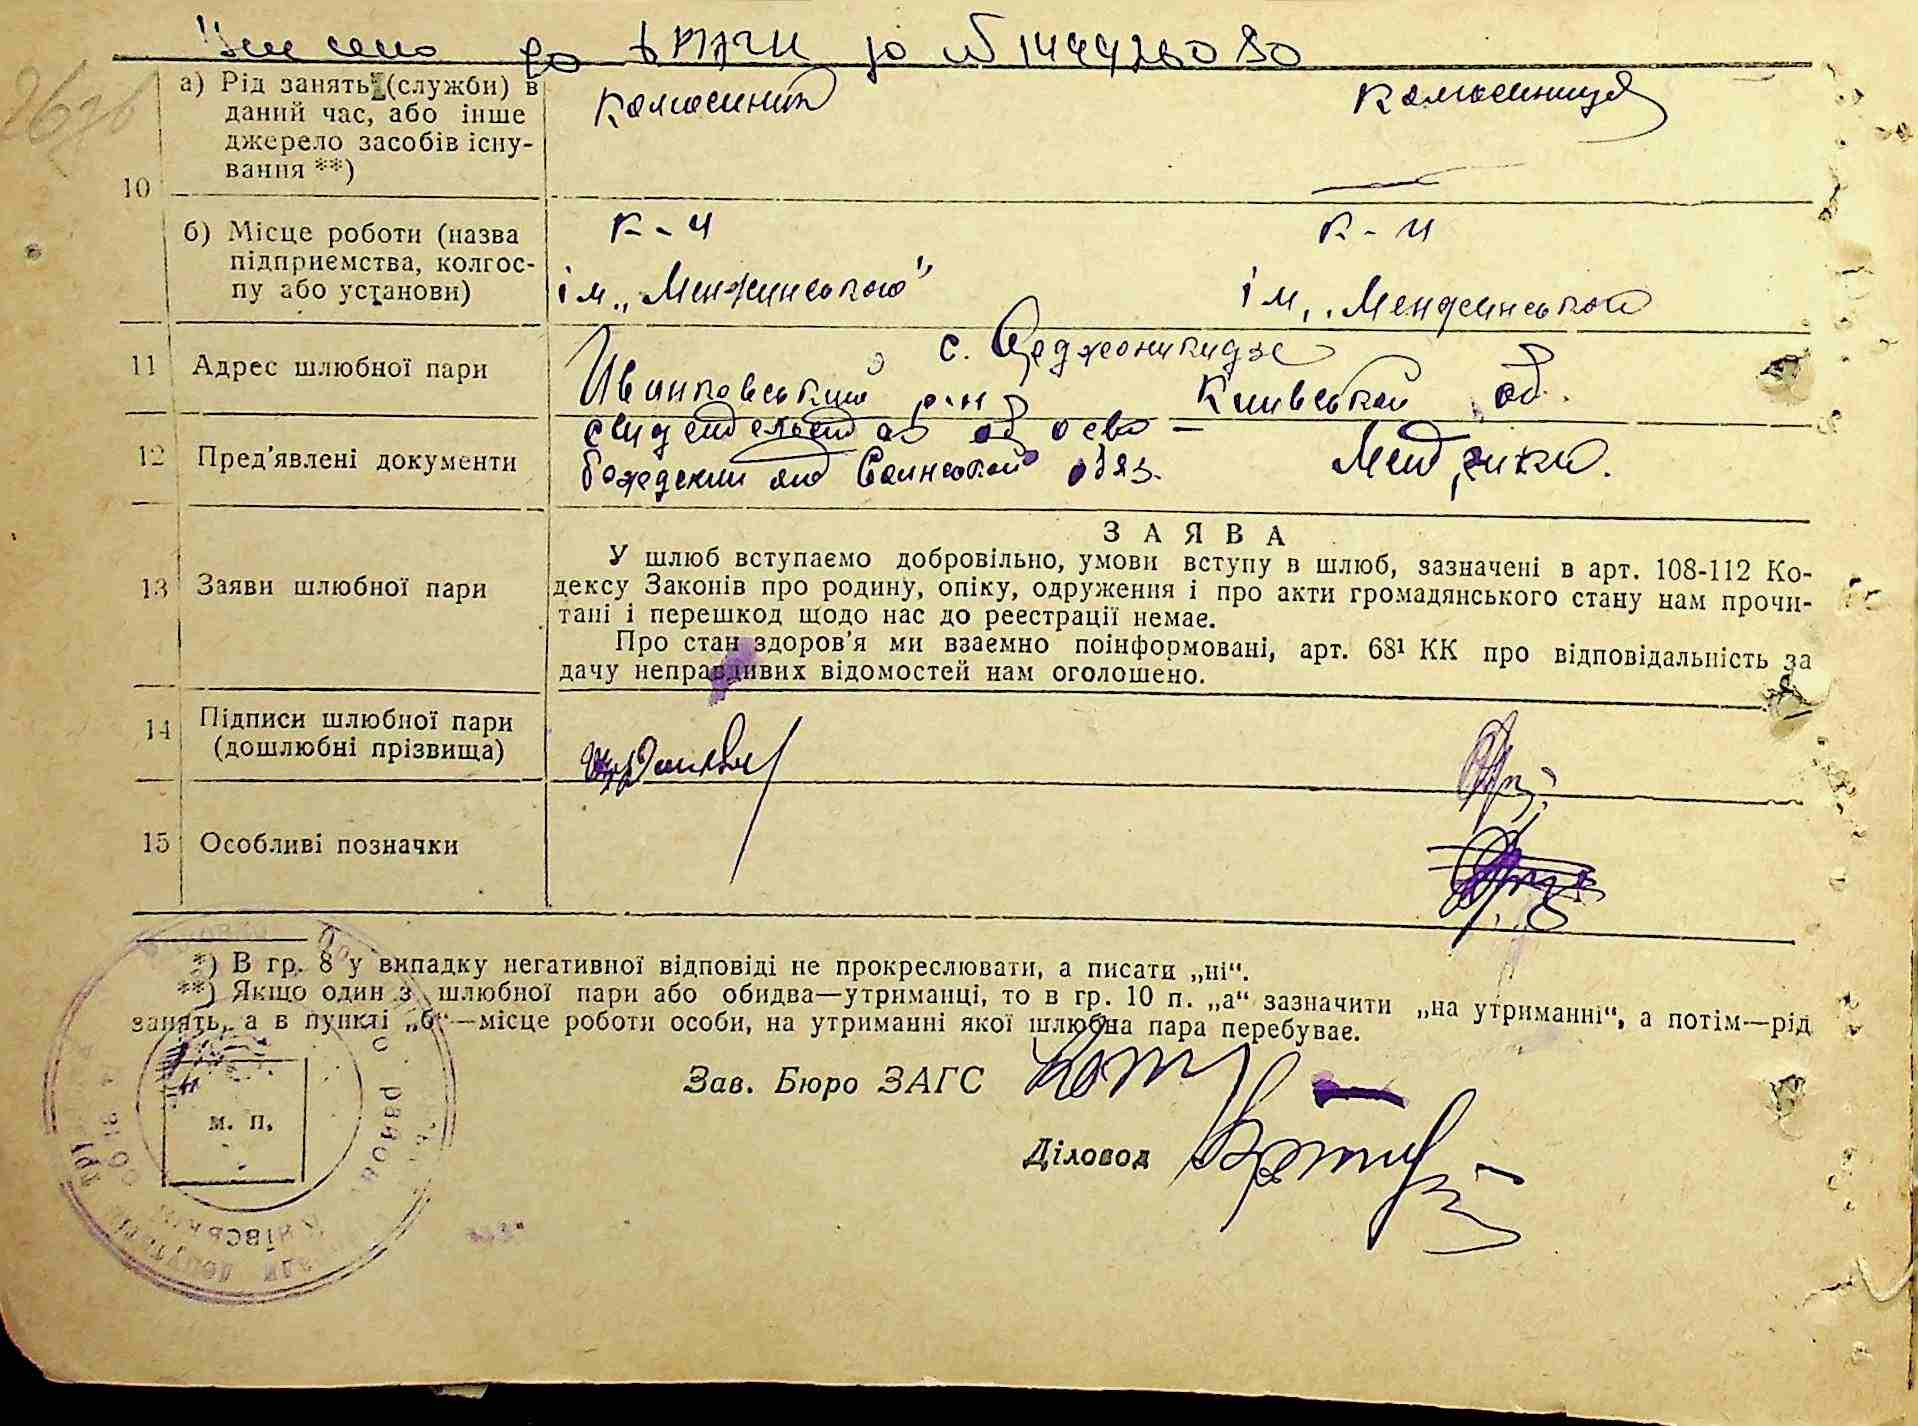 Внесено до ДРАЦС за № 1444260 80
а) Рід занять (служби) в
даний час, або інше
джерело засобів існу-
вання **)
колгоспник
колгоспниця
10
б) Місце роботи (назва
підприємства, колгос-
пу або установи)
к-п
ім. „Менжинського"
к-п
ім. „Менжинського
11 Адрес шлюбної пари
с. Орджоникидзе
Иванковський р-н Київської об.
12 Пред'явлені документи
свидетельство об осво-
бождении от воинской обяз.
Метрики.
13 Заяви шлюбної пари
ЗАЯВА
У шлюб вступаємо добровільно, умови вступу в шлюб, зазначені в арт. 108-112 Ко-
дексу Законів про родину, опіку, одруження і про акти громадянського стану нам прочи-
тані і перешкод щодо нас до реєстрації немає.
Про стан здоров'я ми взаємно поінформовані, арт. 68¹ КК про відповідальність за
дачу неправдивих відомостей нам оголошено.
14 Підписи шлюбної пари
(дошлюбні прізвища)
15 Особливі позначки
*) В гр. 8 у випадку негативної відповіді не прокреслювати, а писати „ні“.
**) Якщо один з шлюбної пари або обидва—утриманці, то в гр. 10 п. „а“ зазначити „на утриманні“, а потім—рід
занять, а в пункті „б“—місце роботи особи, на утриманні якої шлюбна пара перебуває.
Зав. Бюро ЗАГС
м. п.
Діловод